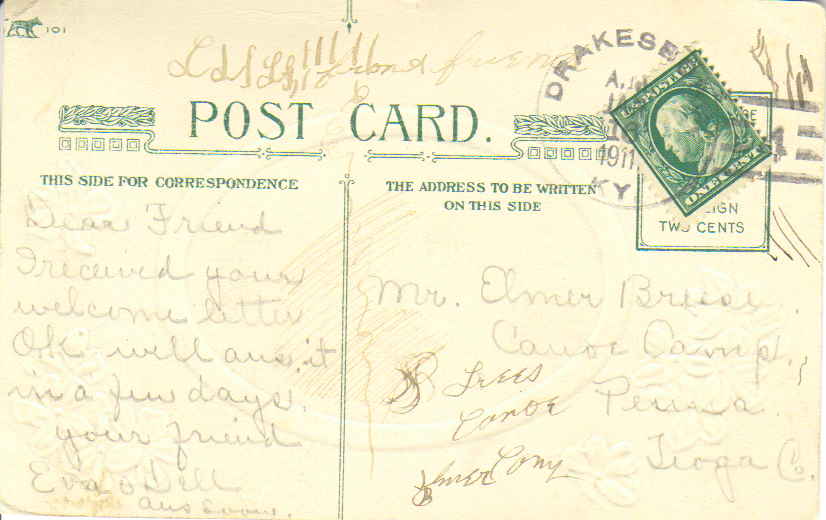 101
friend
DRAKESB
A.M
1911
KY
U.S. POSTAGE
ONE CENT
POST CARD.
THIS SIDE FOR CORRESPONDENCE
THE ADDRESS TO BE WRITTEN
ON THIS SIDE
EIGN
TWO CENTS
Dear Friend
I received your
welcome letter
OK will ans. it
in a few days.
your friend
Eva O'Dell
ans soon.
Mr. Elmer Breese.
Canoe Camp.
Penna.
Tioga Co.
Trees
Canoe